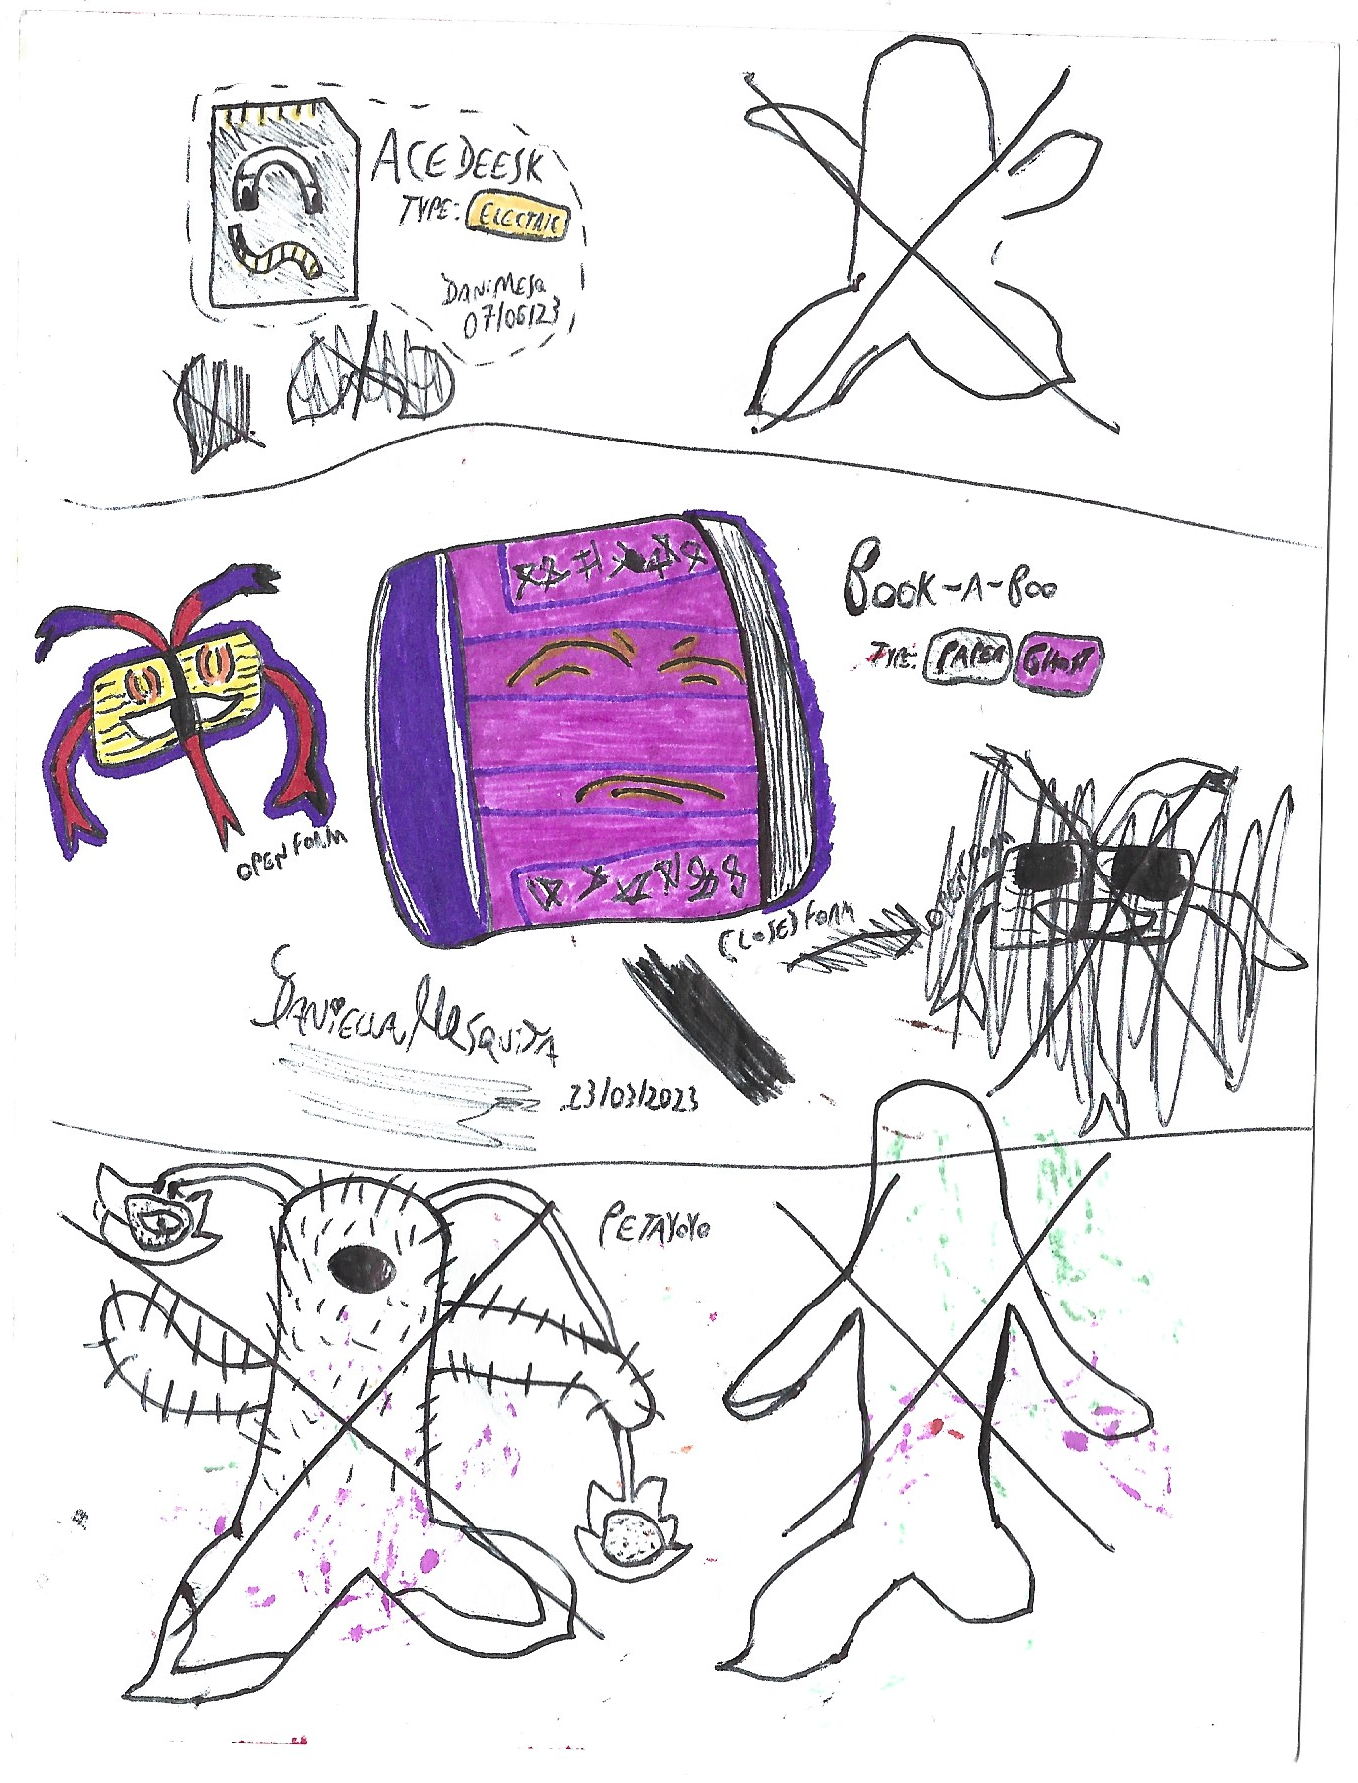 ACEDEESK
TYPE: ELECTRIC
DANiMESQ
07/06/23
BOOK-A-BOO
TYPE: PAPER GHOST
OPEN FORM
CLOSED FORM
OPEN FORM
DANiELLA MESQUiTA
23/03/2023
PETAYOYO